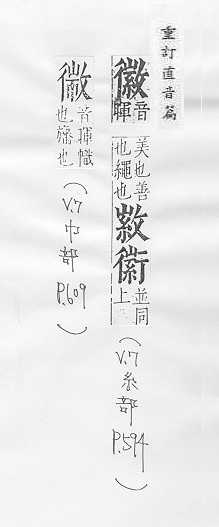 重訂直音篇
徽音暉美也善也繩也並同上(V.7糸部P.594)
幑音揮幟也旛也(V.7巾部P.609)